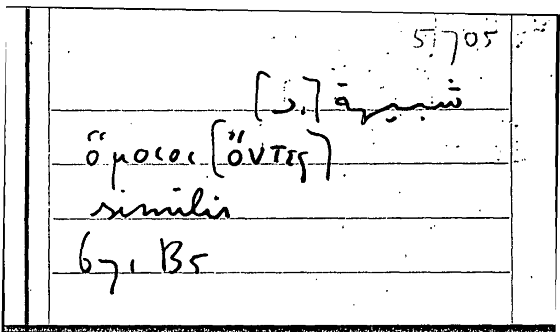 51705
شبيهة [بـ]
ὅμοιος [ὄντες]
similis
671 B5